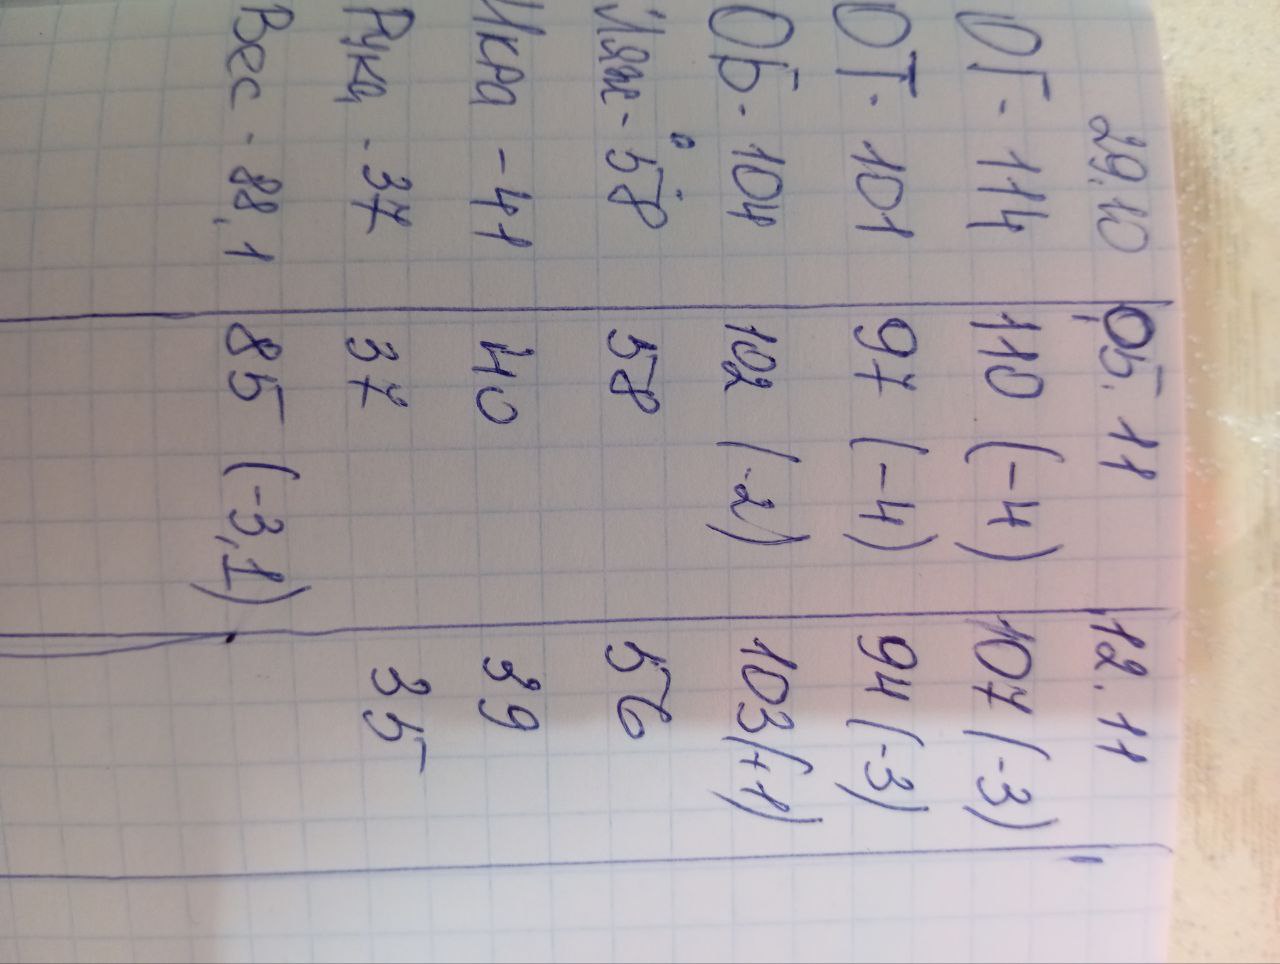 29.10 05.11 12.11
ОГ - 114 110 (-4) 107 (-3)
ОТ - 101 97 (-4) 94 (-3)
ОБ - 104 102 (-2) 103 (+1)
Ляж - 58 58 56
Икра - 41 40 39
Рука - 37 37 35
Вес - 88,1 85 (-3,1)